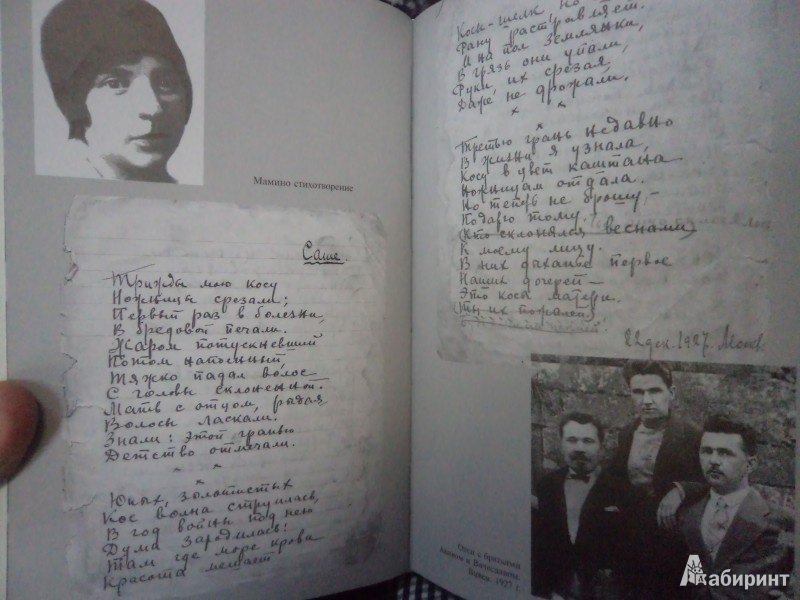 Мамино стихотворение
Саше
Трижды мою косу
Ножницы срезали;
Первый раз в болезни,
В бредовой печали.
Жаром потускневший
Потом напоенный,
Тяжко падал волос
С головы склоненной.
Мать с отцом, радея
Волосы ласкали.
Знали: этой гранью
Детство отмечали.
x x
x
Юных, золотистых
Кос волна струилась,
В год войны под нею
Дума зародилась:
Там где море крови
Красота мешает
Косы-шелк но
Рану растравляет.
И на пол землянки,
В грязь они упали,
Руки, их срезая,
Даже не дрожали.
x x
x
Третью грань недавно
В жизни я узнала,
Косу в цвет каштана
Ножницам отдала.
Но теперь не брошу, –
Подарю тому,
(Кто склонялся веснами)
К моему лицу.
В них дыханье первое
Наших дочерей –
Это косы матери.
22 дек. 1927. Москв.
Отец с братьями
и Вячеславом.
1927 г.
Лабиринт